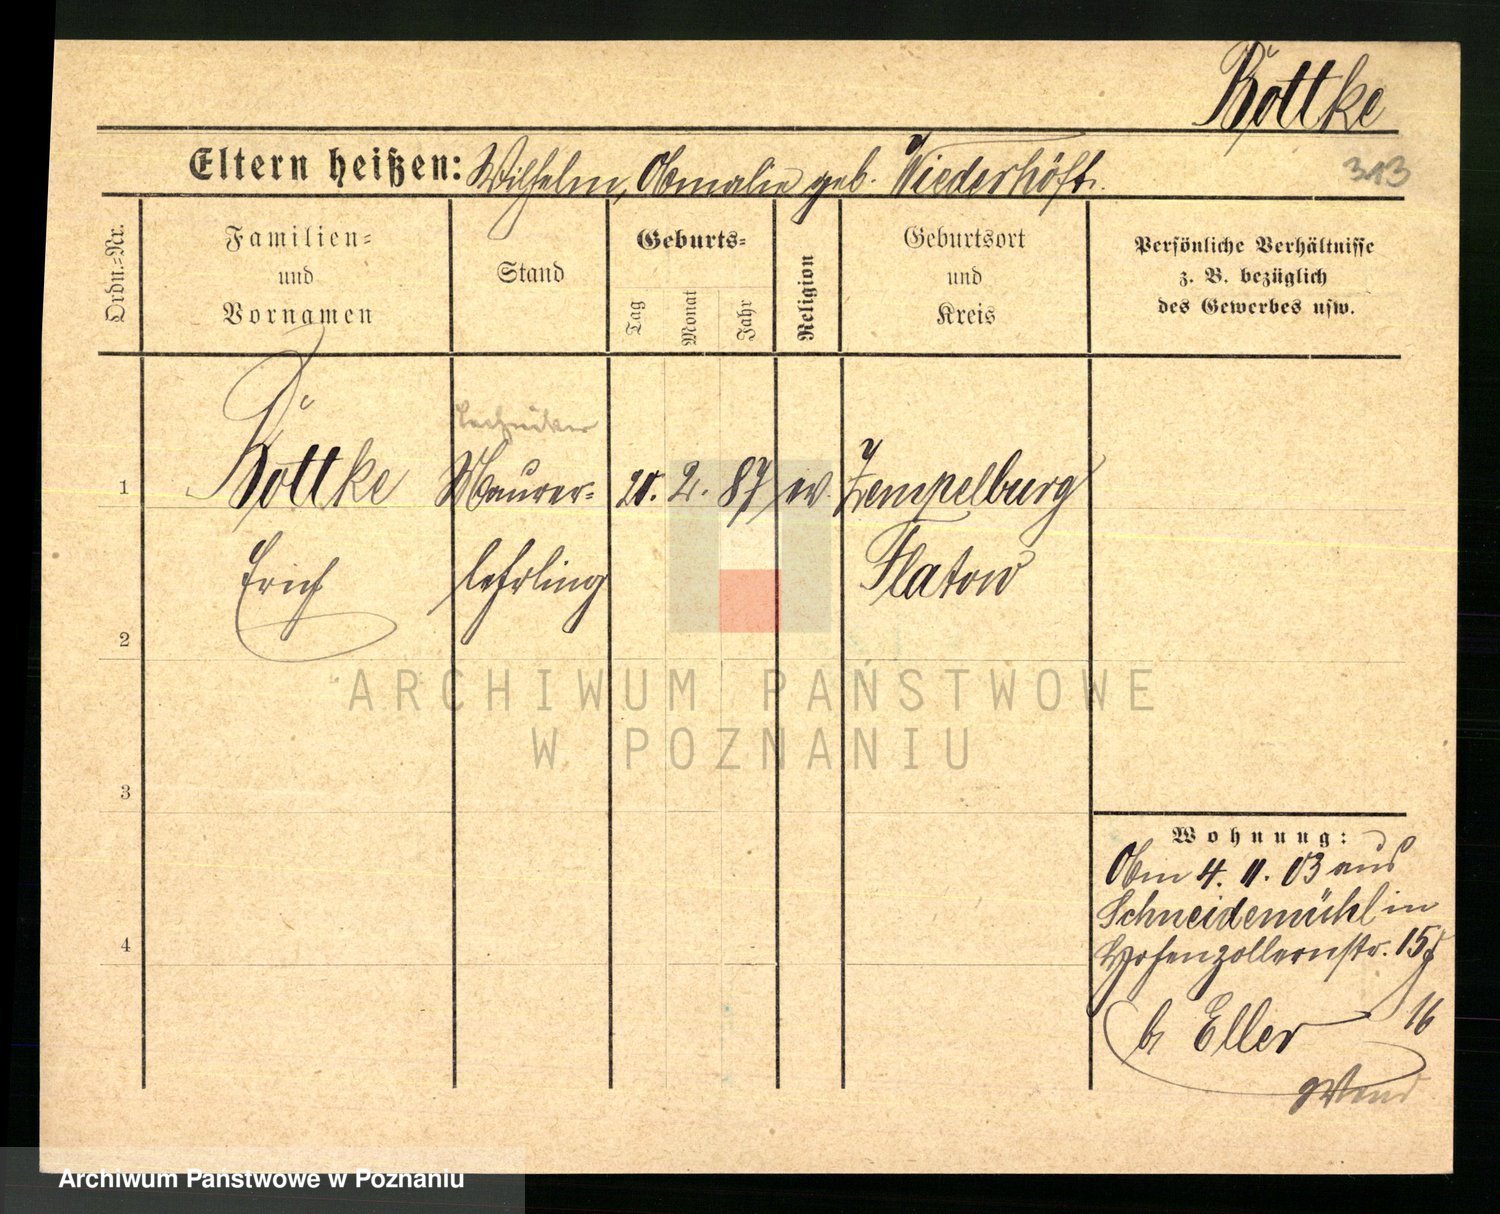 Böttke
Eltern heißen: Wilhelm, Amalie geb. Niederhöft.
313
Ordn.-Nr.
Familien-
und
Vornamen
Stand
Geburts-
Tag
Monat
Jahr
Religion
Geburtsort
und
Kreis
Persönliche Verhältnisse
z. B. bezüglich
des Gewerbes usw.
Techniker
1 Böttke Maurer- 20. 2. 87 ev. Zempelburg
Erich lehrling Flatow
2
ARCHIWUM PAŃSTWOWE
W POZNANIU
3
Wohnung:
Am 4. 11. 03 aus
Schneidemühl in
Hohenzollernstr. 15
4
b Eller 16
Archiwum Państwowe w Poznaniu